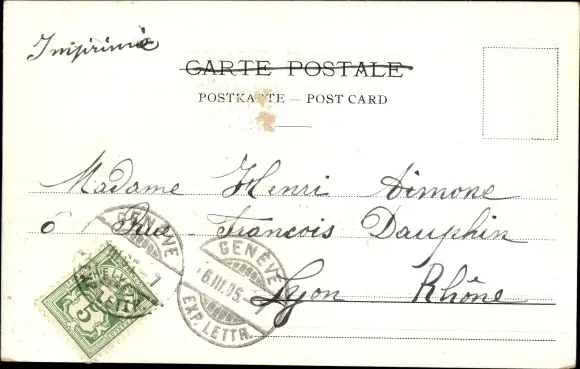 Imprimé
CARTE POSTALE
POSTKARTE — POST CARD
Madame Henri Aimone
6 Rue François Dauphin
Lyon Rhône
GENÈVE
GENÈVE
6.III.05.
EXP. LETTR.
HELVETIA
5
EXP. LETTR.